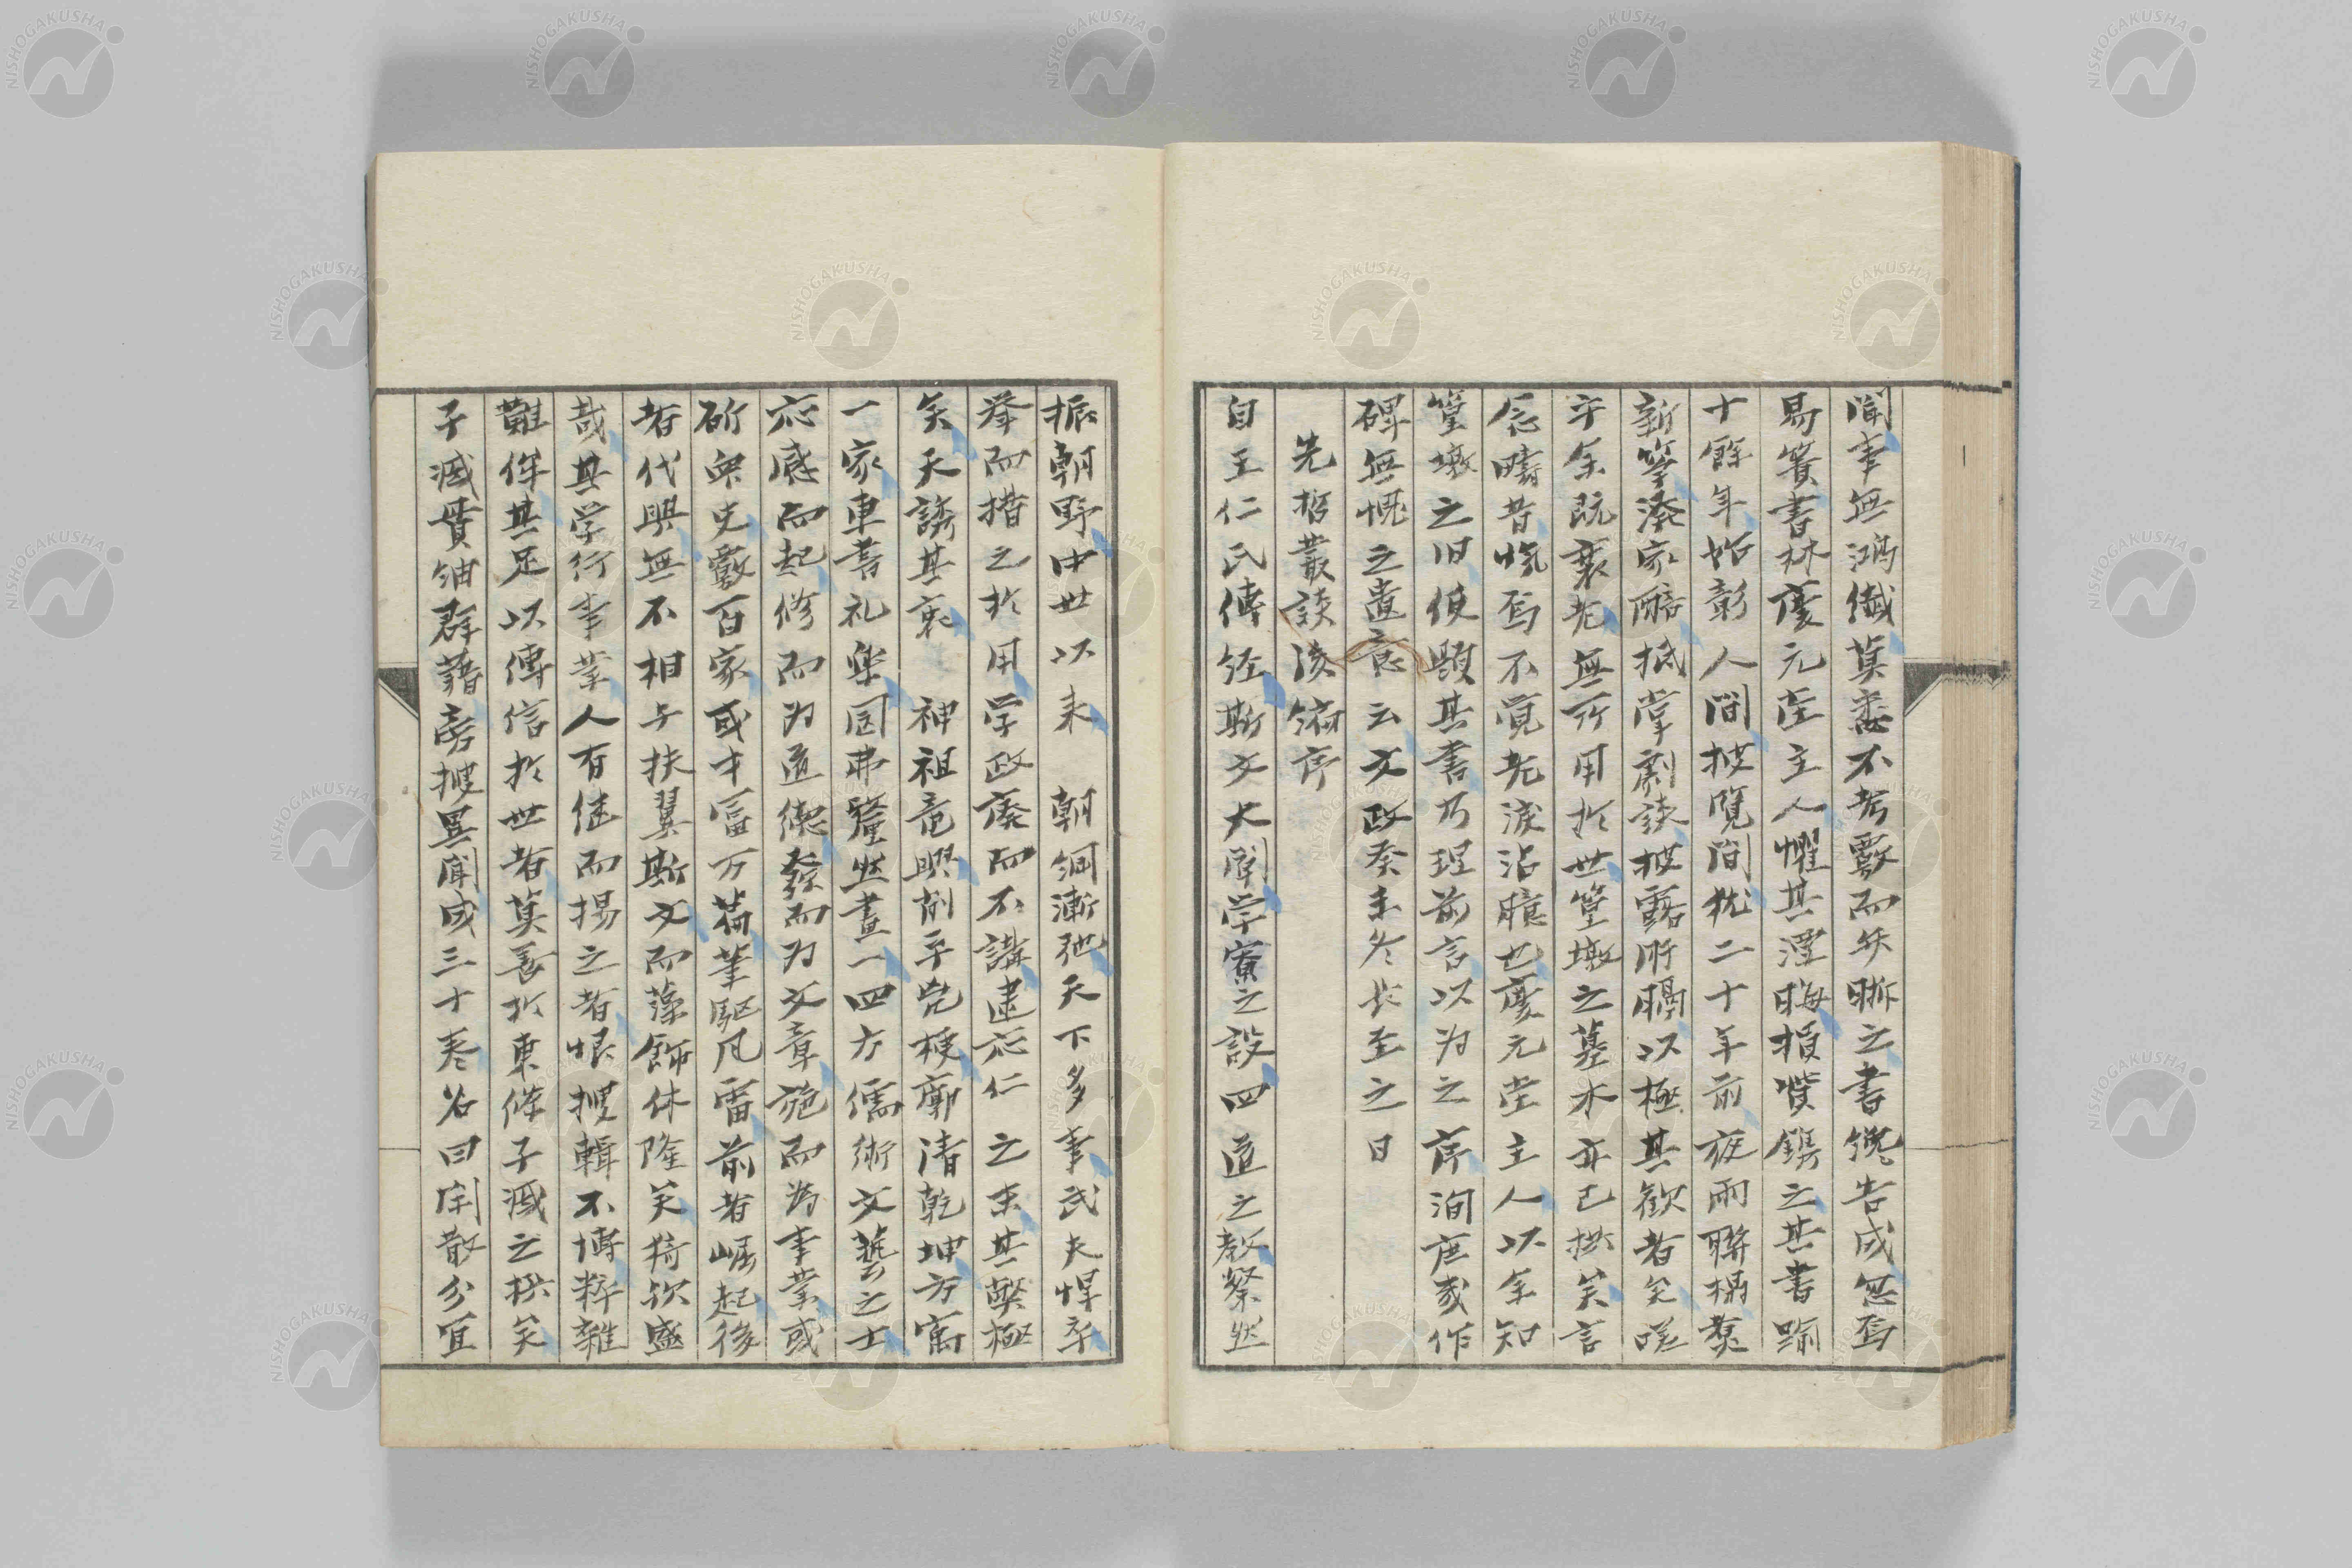 聞事無鴻纖莫悉不考覈而矢晰之書纔告成忽焉
易簀書林慶元堂主人懼其湮晦損貲鐫之其書踰
十餘年始彰人間披覧間犹二十年前夜雨聯榻煑
新篘潑家醅抵掌劇談披露所膈以極其歓者矣嗟
乎余既衰老無所用於世篁墩之墓木亦已拱矣言
念疇昔怳焉不覚老淚沾臆也慶元堂主人以余知
篁墩之旧使題其書乃理前言以为之序洵庶㡬作
碑無愧之遺意云文政癸未冬长至之日
先哲叢談後編序
自王仁氏傳経斯文大闡学寮之設四道之教粲然
振朝野中世以来　朝綱漸弛天下多事武夫悍卒
举而措之於用学政廃而不講逮応仁之末其弊極
矣天誘其衷　神祖竜興削平兇梗廓清乾坤方寓
一家車書礼楽罔弗釐然畫一四方儒術文藝之士
応感而起修而为道德發而为文章施而為事業或
斫衆史覈百家或才冨万萹筆駆风雷前者崛起後
者代興無不相与扶翼斯文而藻飾休隆矣猗欤盛
哉其学行事業人有继而揚之者恨搜輯不博粹雜
難侔其足以傳信於世者莫善於東條子臧之撰矣
子臧貫紬群籍旁搜異聞成三十巻名曰閑散分宜